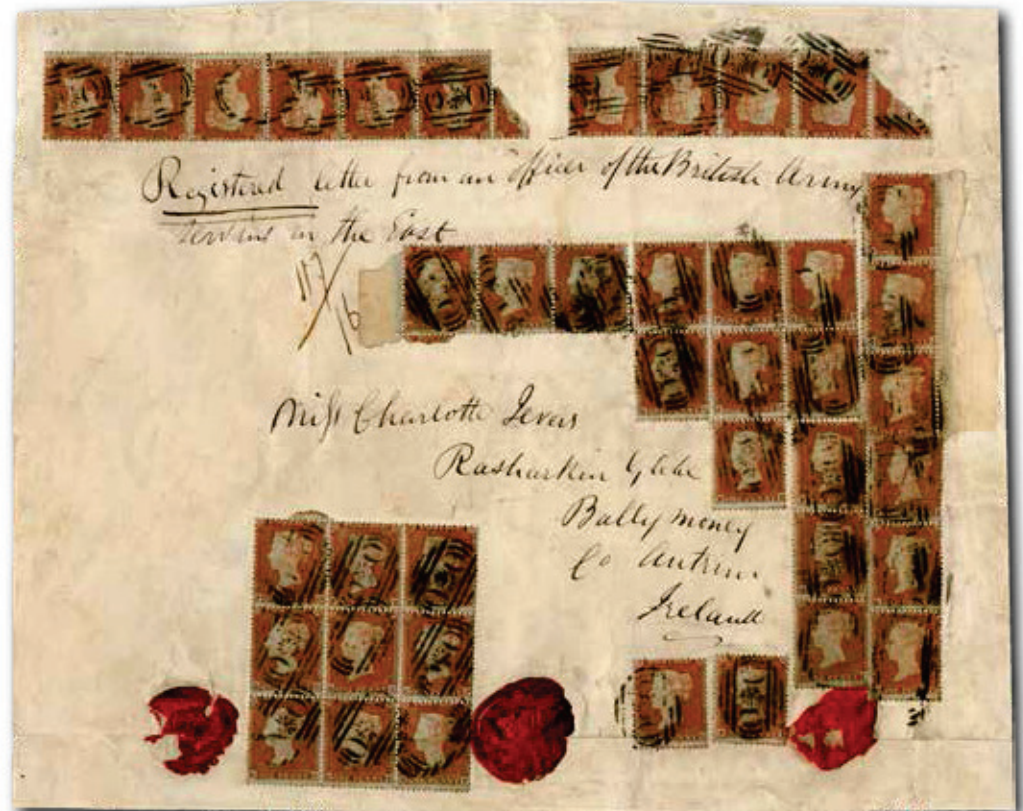 Registered letter from an Officer of the British Army
serving in the East
117/16
Miss Charlotte
Rasharkin Glebe
Ballymoney
Co Antrim
Ireland